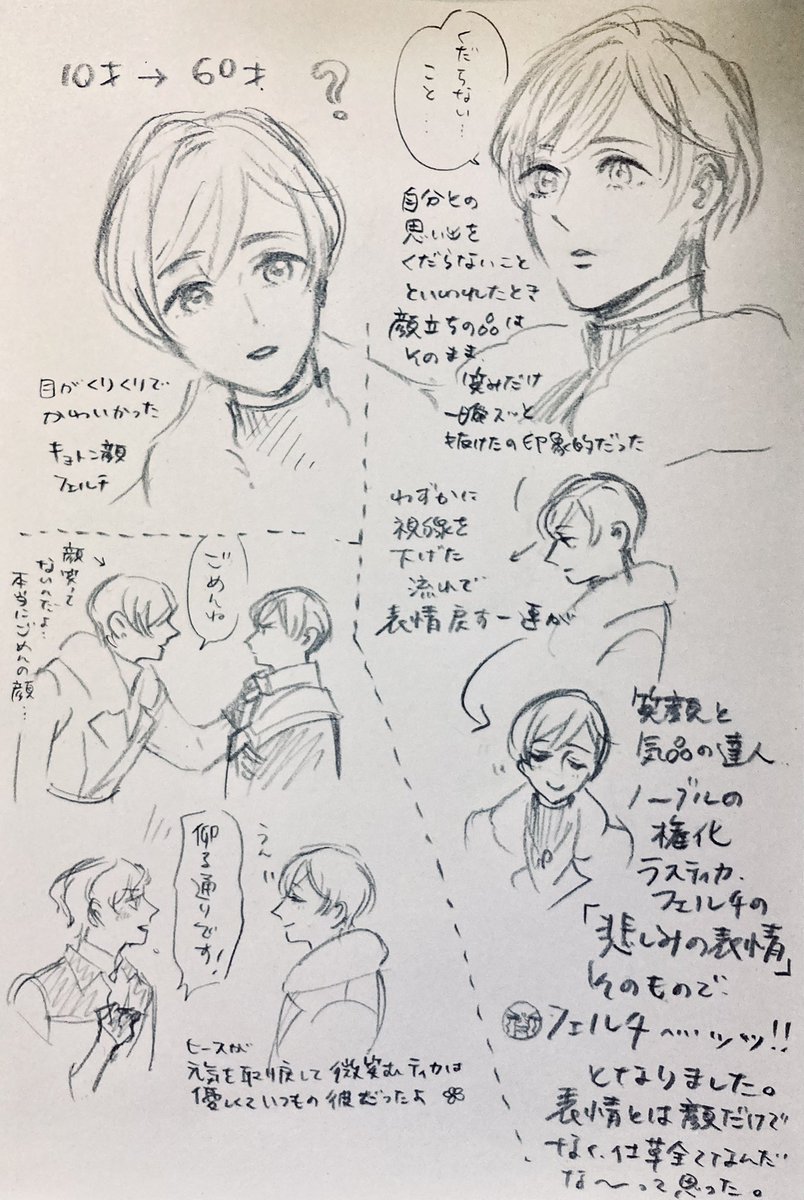 10才→60才 ?
目がくりくりで
かわいかった
キョトン顔
フェルチ
くだらない…
こと…
自分との
思い出を
くだらないこと
といわれたとき
顔立ちの品は
そのまま、
笑みだけ
一瞬スッと
抜けたの印象的だった
わずかに
視線を
下げた
流れで
表情戻す一連が
笑顔と
気品の達人
ノーブルの
権化
ラスティカ・
フェルチの
「悲しみの表情」
そのもので、
フェルチ〜…ッッ!!
となりました。
表情とは顔だけで
なく、仕草全てなんだ
な〜って思った。
顔笑って
ないのだよ…
本当にごめんの顔…
ごめんね
仰る通りです!
うん
ヒースが
元気を取り戻して微笑むティカは
優しくていつもの彼だったよ